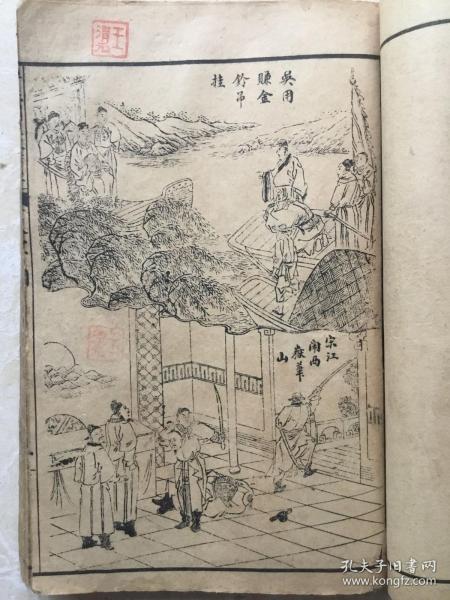 吳用
賺金
鈴吊
挂
宋江
閙西
嶽華
山
孔夫子旧书网
www.kongfz.com